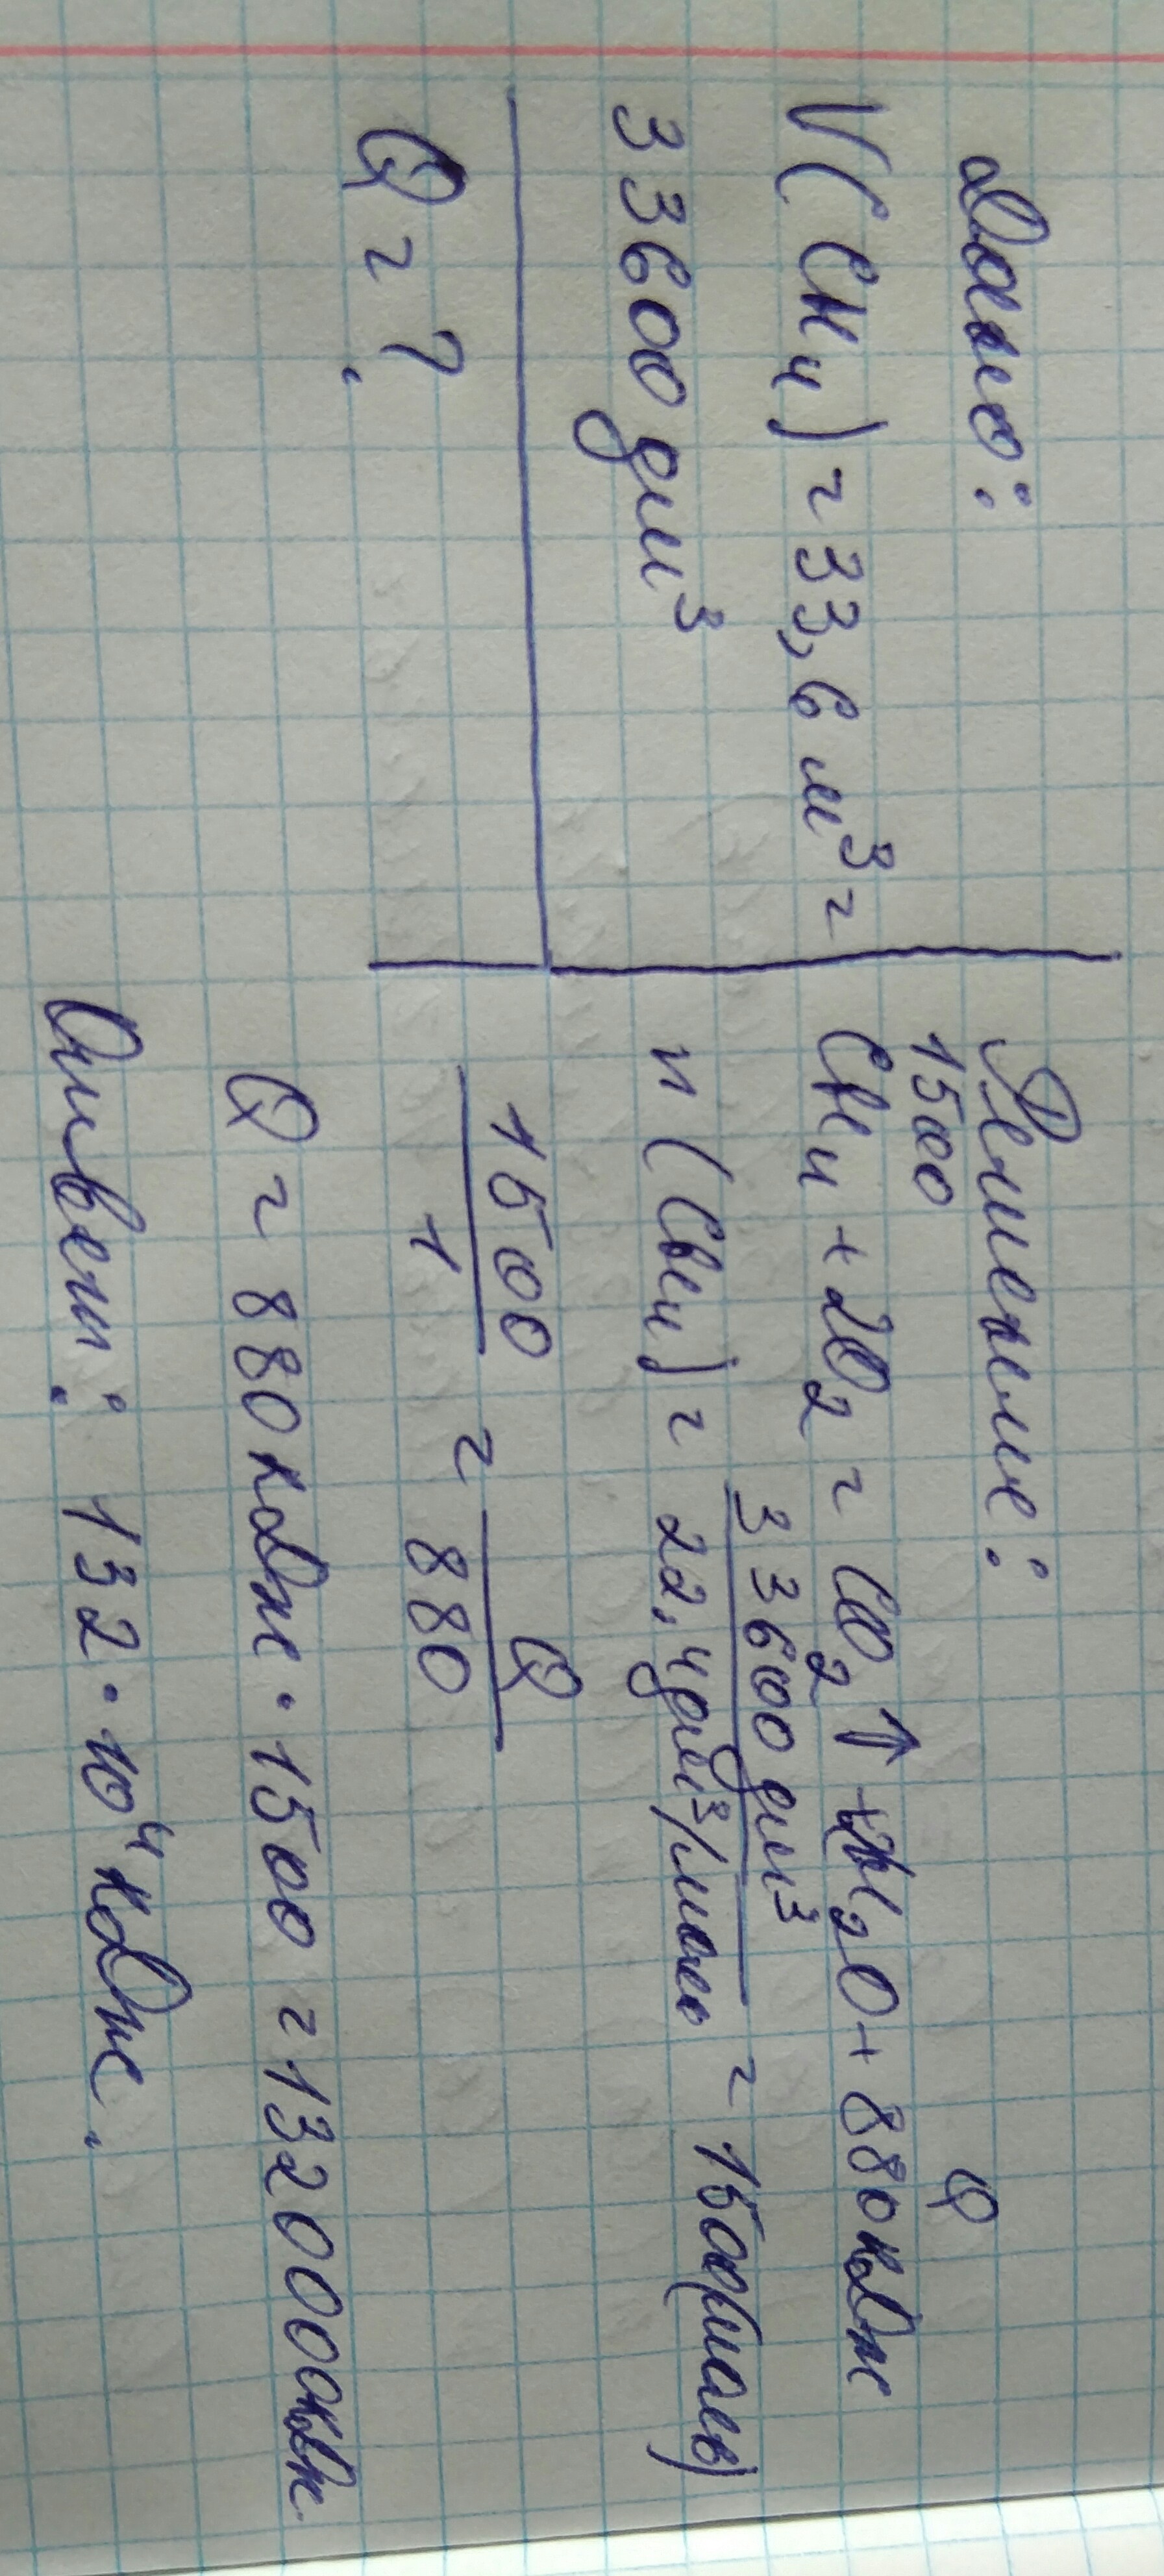 Дано:
V(CH4) = 33,6 м³ =
33600 дм³
Q = ?
Решение:
1500 Q
CH4 + 2O2 = CO2↑ + 2H2O + 880 кДж
n(CH4) = 33600 дм³ / 22,4 дм³/моль = 1500 (моль)
1500 / 1 = Q / 880
Q = 880 кДж · 1500 = 1320000 кДж
Ответ: 132 · 10⁴ кДж.